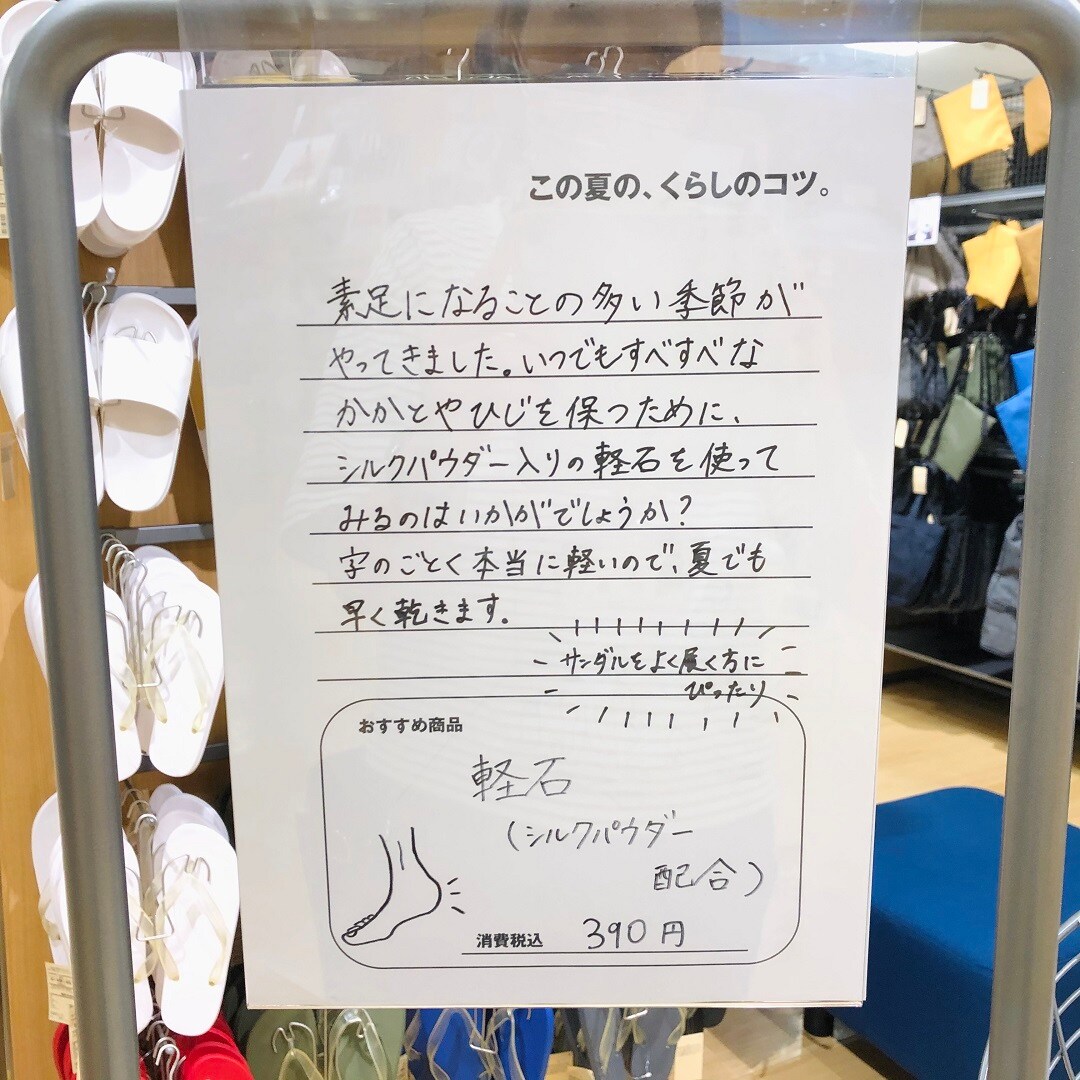 この夏の、くらしのコツ。
素足になることの多い季節が
やってきました。いつでもすべすべな
かかとやひじを保つために、
シルクパウダー入りの軽石を使って
みるのはいかがでしょうか?
字のごとく本当に軽いので、夏でも
早く乾きます。
サンダルをよく履く方に
ぴったり
おすすめ商品
軽石
(シルクパウダー
配合)
消費税込 390円